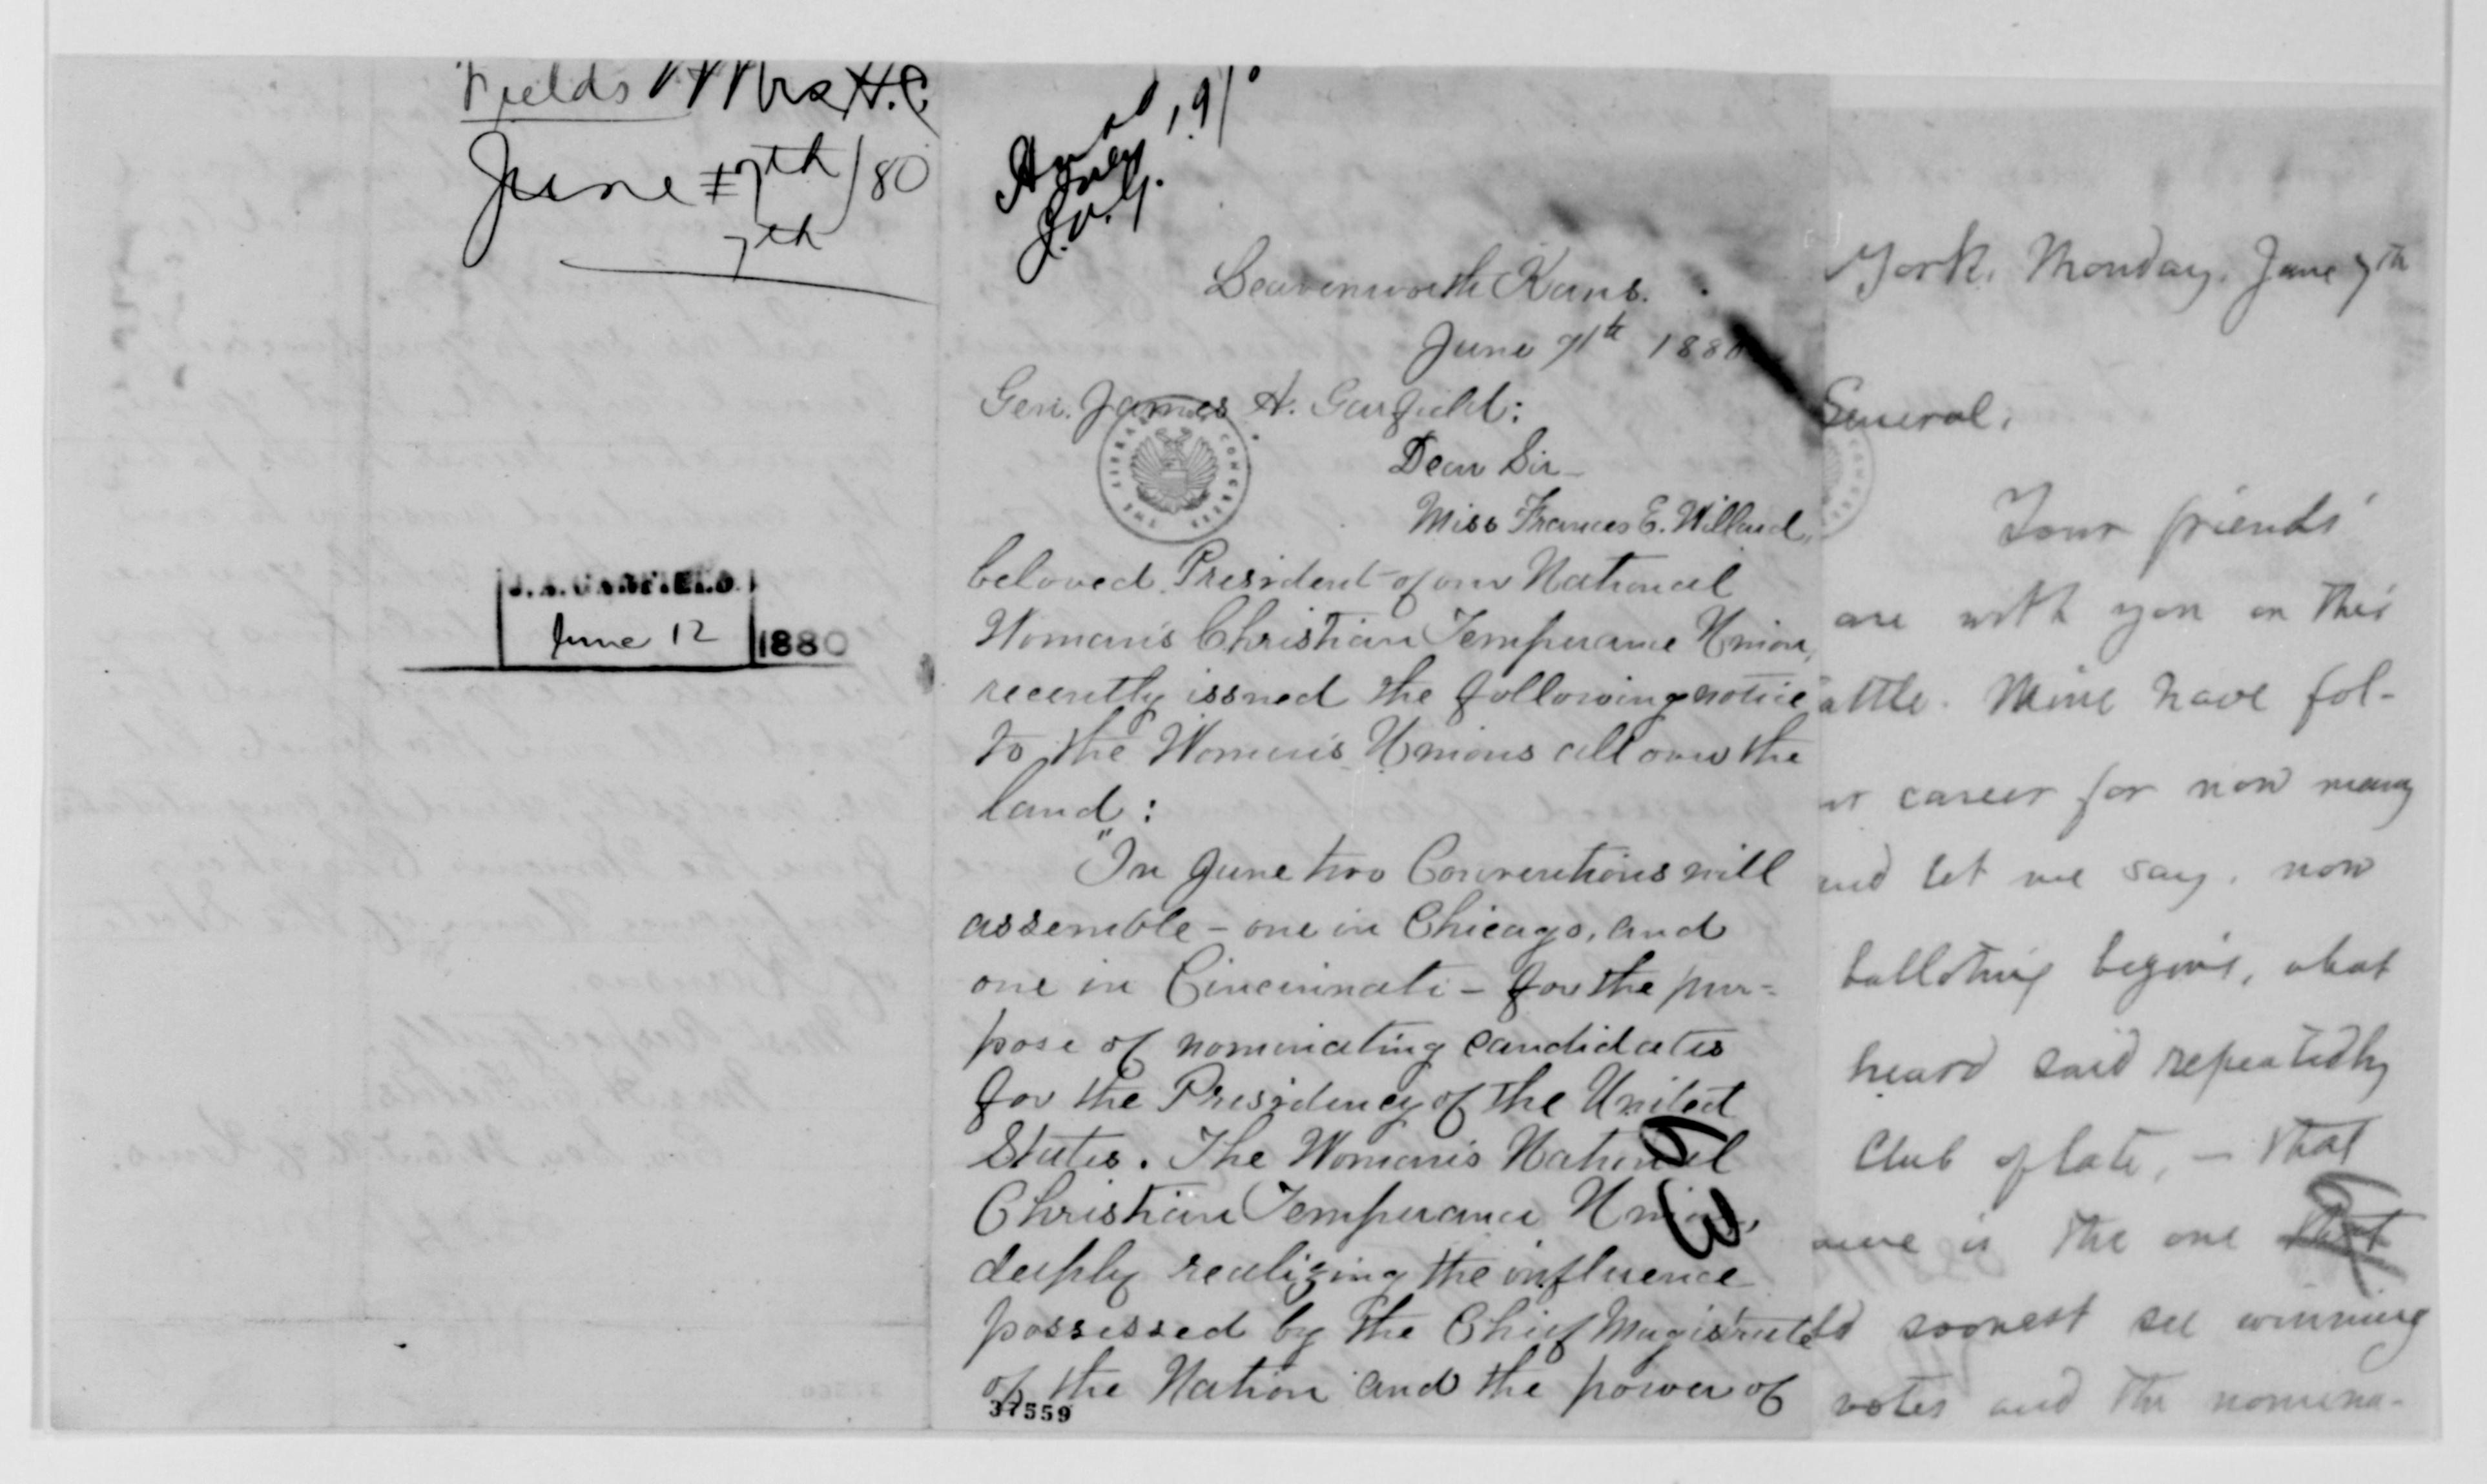 Fields Mrs H.C.
June 7th/80
7th
J. A. GARFIELD.
June 12 1880
J.A.G.
Leavenworth Kans.
June 7th 1880
Gen. James A. Garfield:
Dear Sir
Miss Frances E. Willard,
beloved President of our National
Woman's Christian Temperance Union,
recently issued the following notice
to the Woman's Unions all over the
land:
"In June two Conventions will
assemble – one in Chicago, and
one in Cincinnati – for the pur=
pose of nominating candidates
for the Presidency of the United
States. The Woman's National
Christian Temperance Union,
deeply realizing the influence
possessed by the Chief Magistrate
of the Nation and the power of
37559
THE LIBRARY OF CONGRESS
York. Monday. June 7th
General,
Your friends
are with you on this
attle. Mine have fol-
career for now many
and let me say, now
balloting begins, what
heard said repeatedly
Club of late, – that
ame is the one that
ld soonest see winning
votes and the nomina-